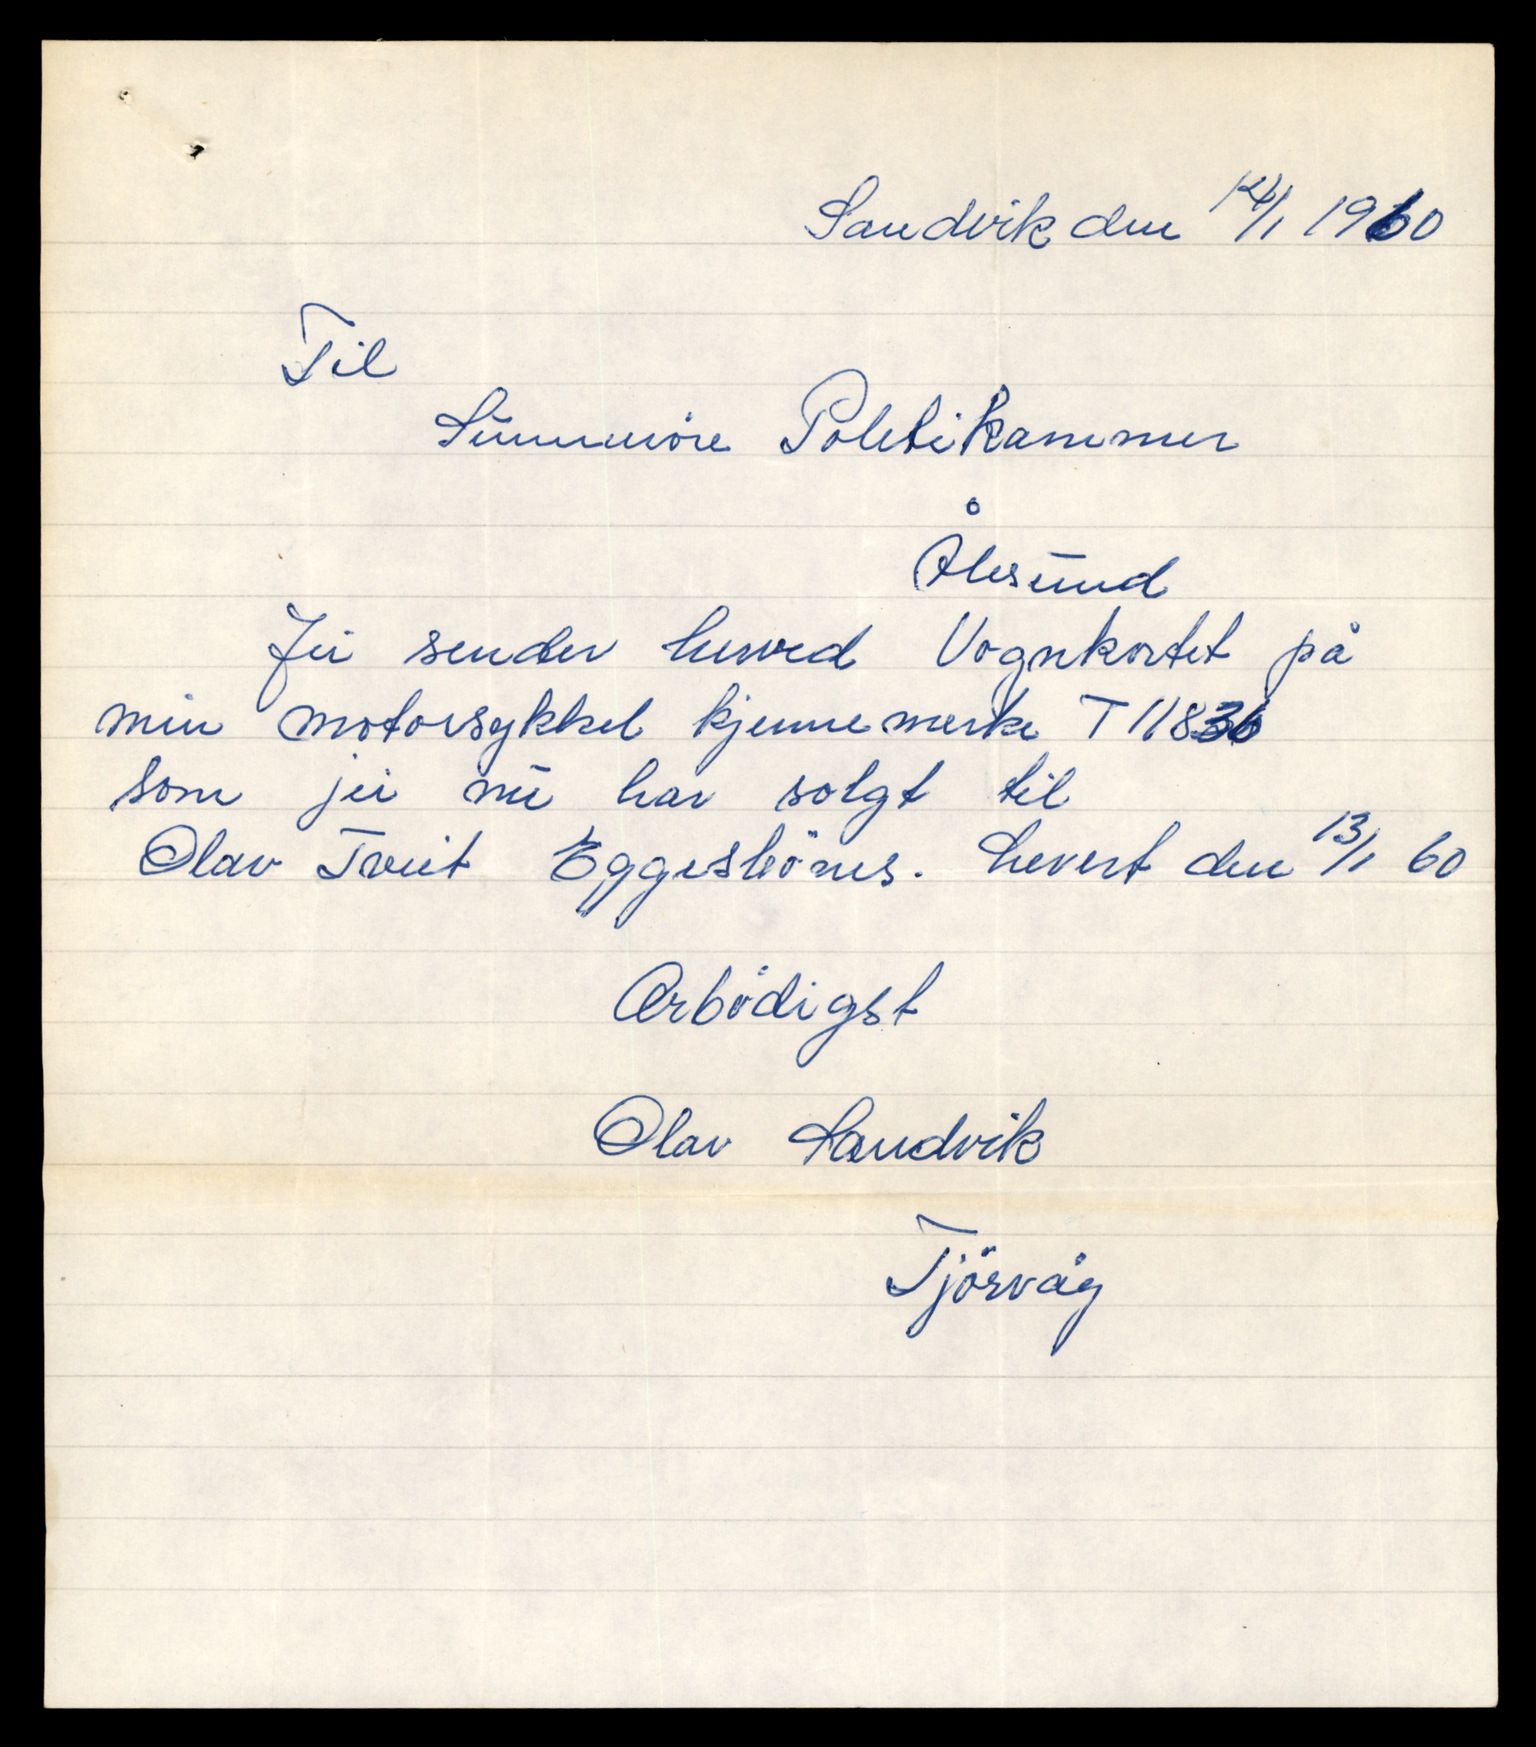 Sandvik den 14/1 1960
Til
Sunnmöre Politikammer
Ålesund
Jei sender herved Vognkortet på
min motorsykkel kjennemerke T 11836
som jei nu har solgt til
Olav Tveit Eggesbönes. Levert den 13/1 60
Ærbödigst
Olav Sandvik
Tjörvåg